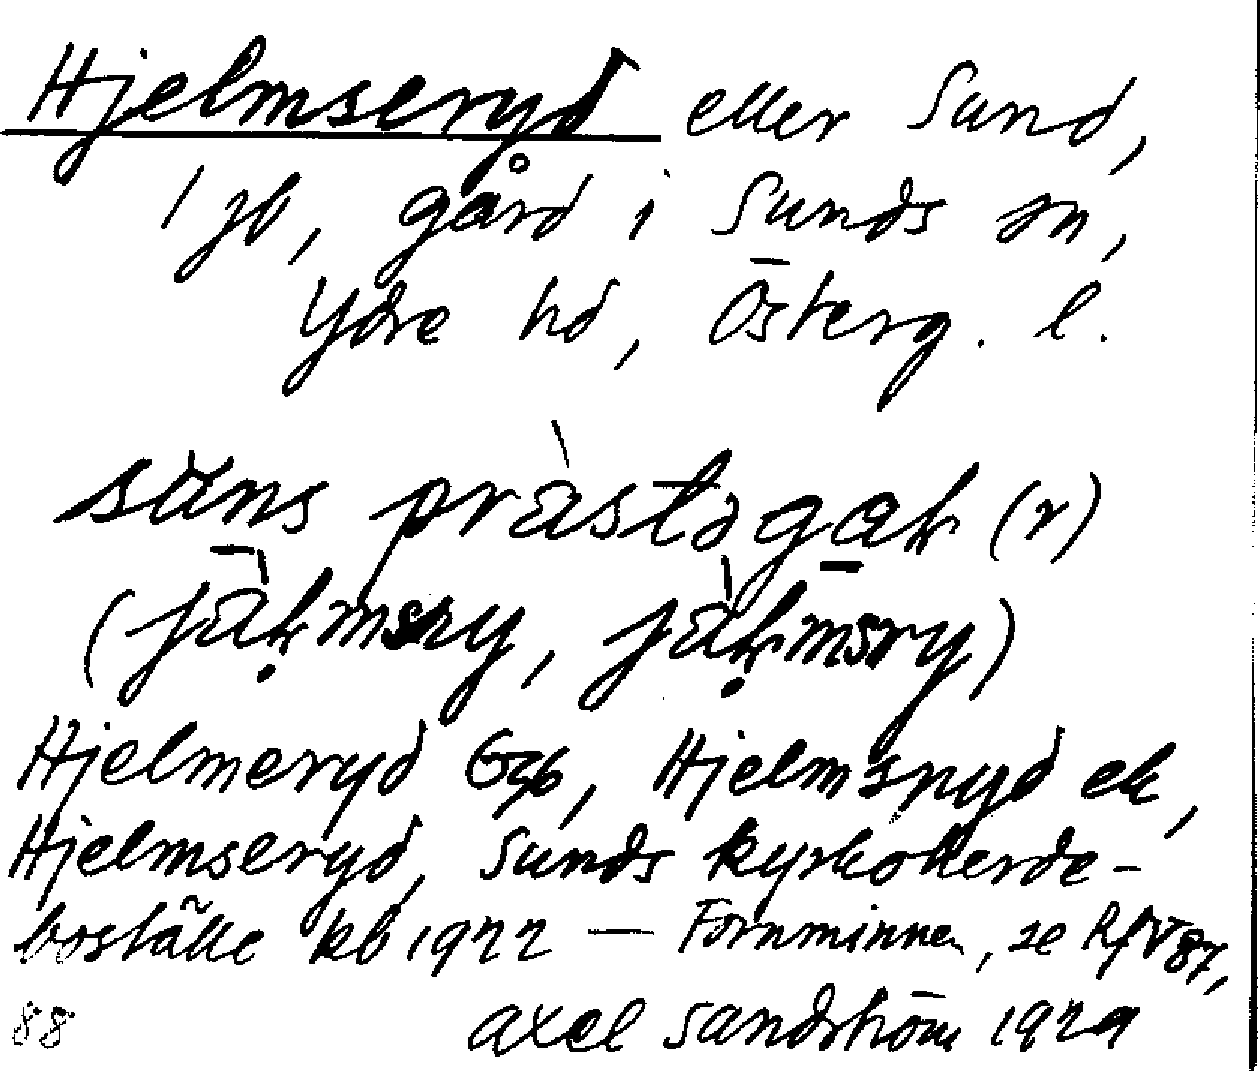 Hjelmseryd eller Sund,
1 jb, gård i Sunds sn,
Ydre hd, Österg. l.
säns prästågaɐ̯k (r)
Hjelmeryd Gjb, Hjelmsryd ek,
Hjelmseryd, Sunds kyrkoherde-
boställe kb 1922 — Fornminnen, se RfV 87,
88 Axel Sandström 1929